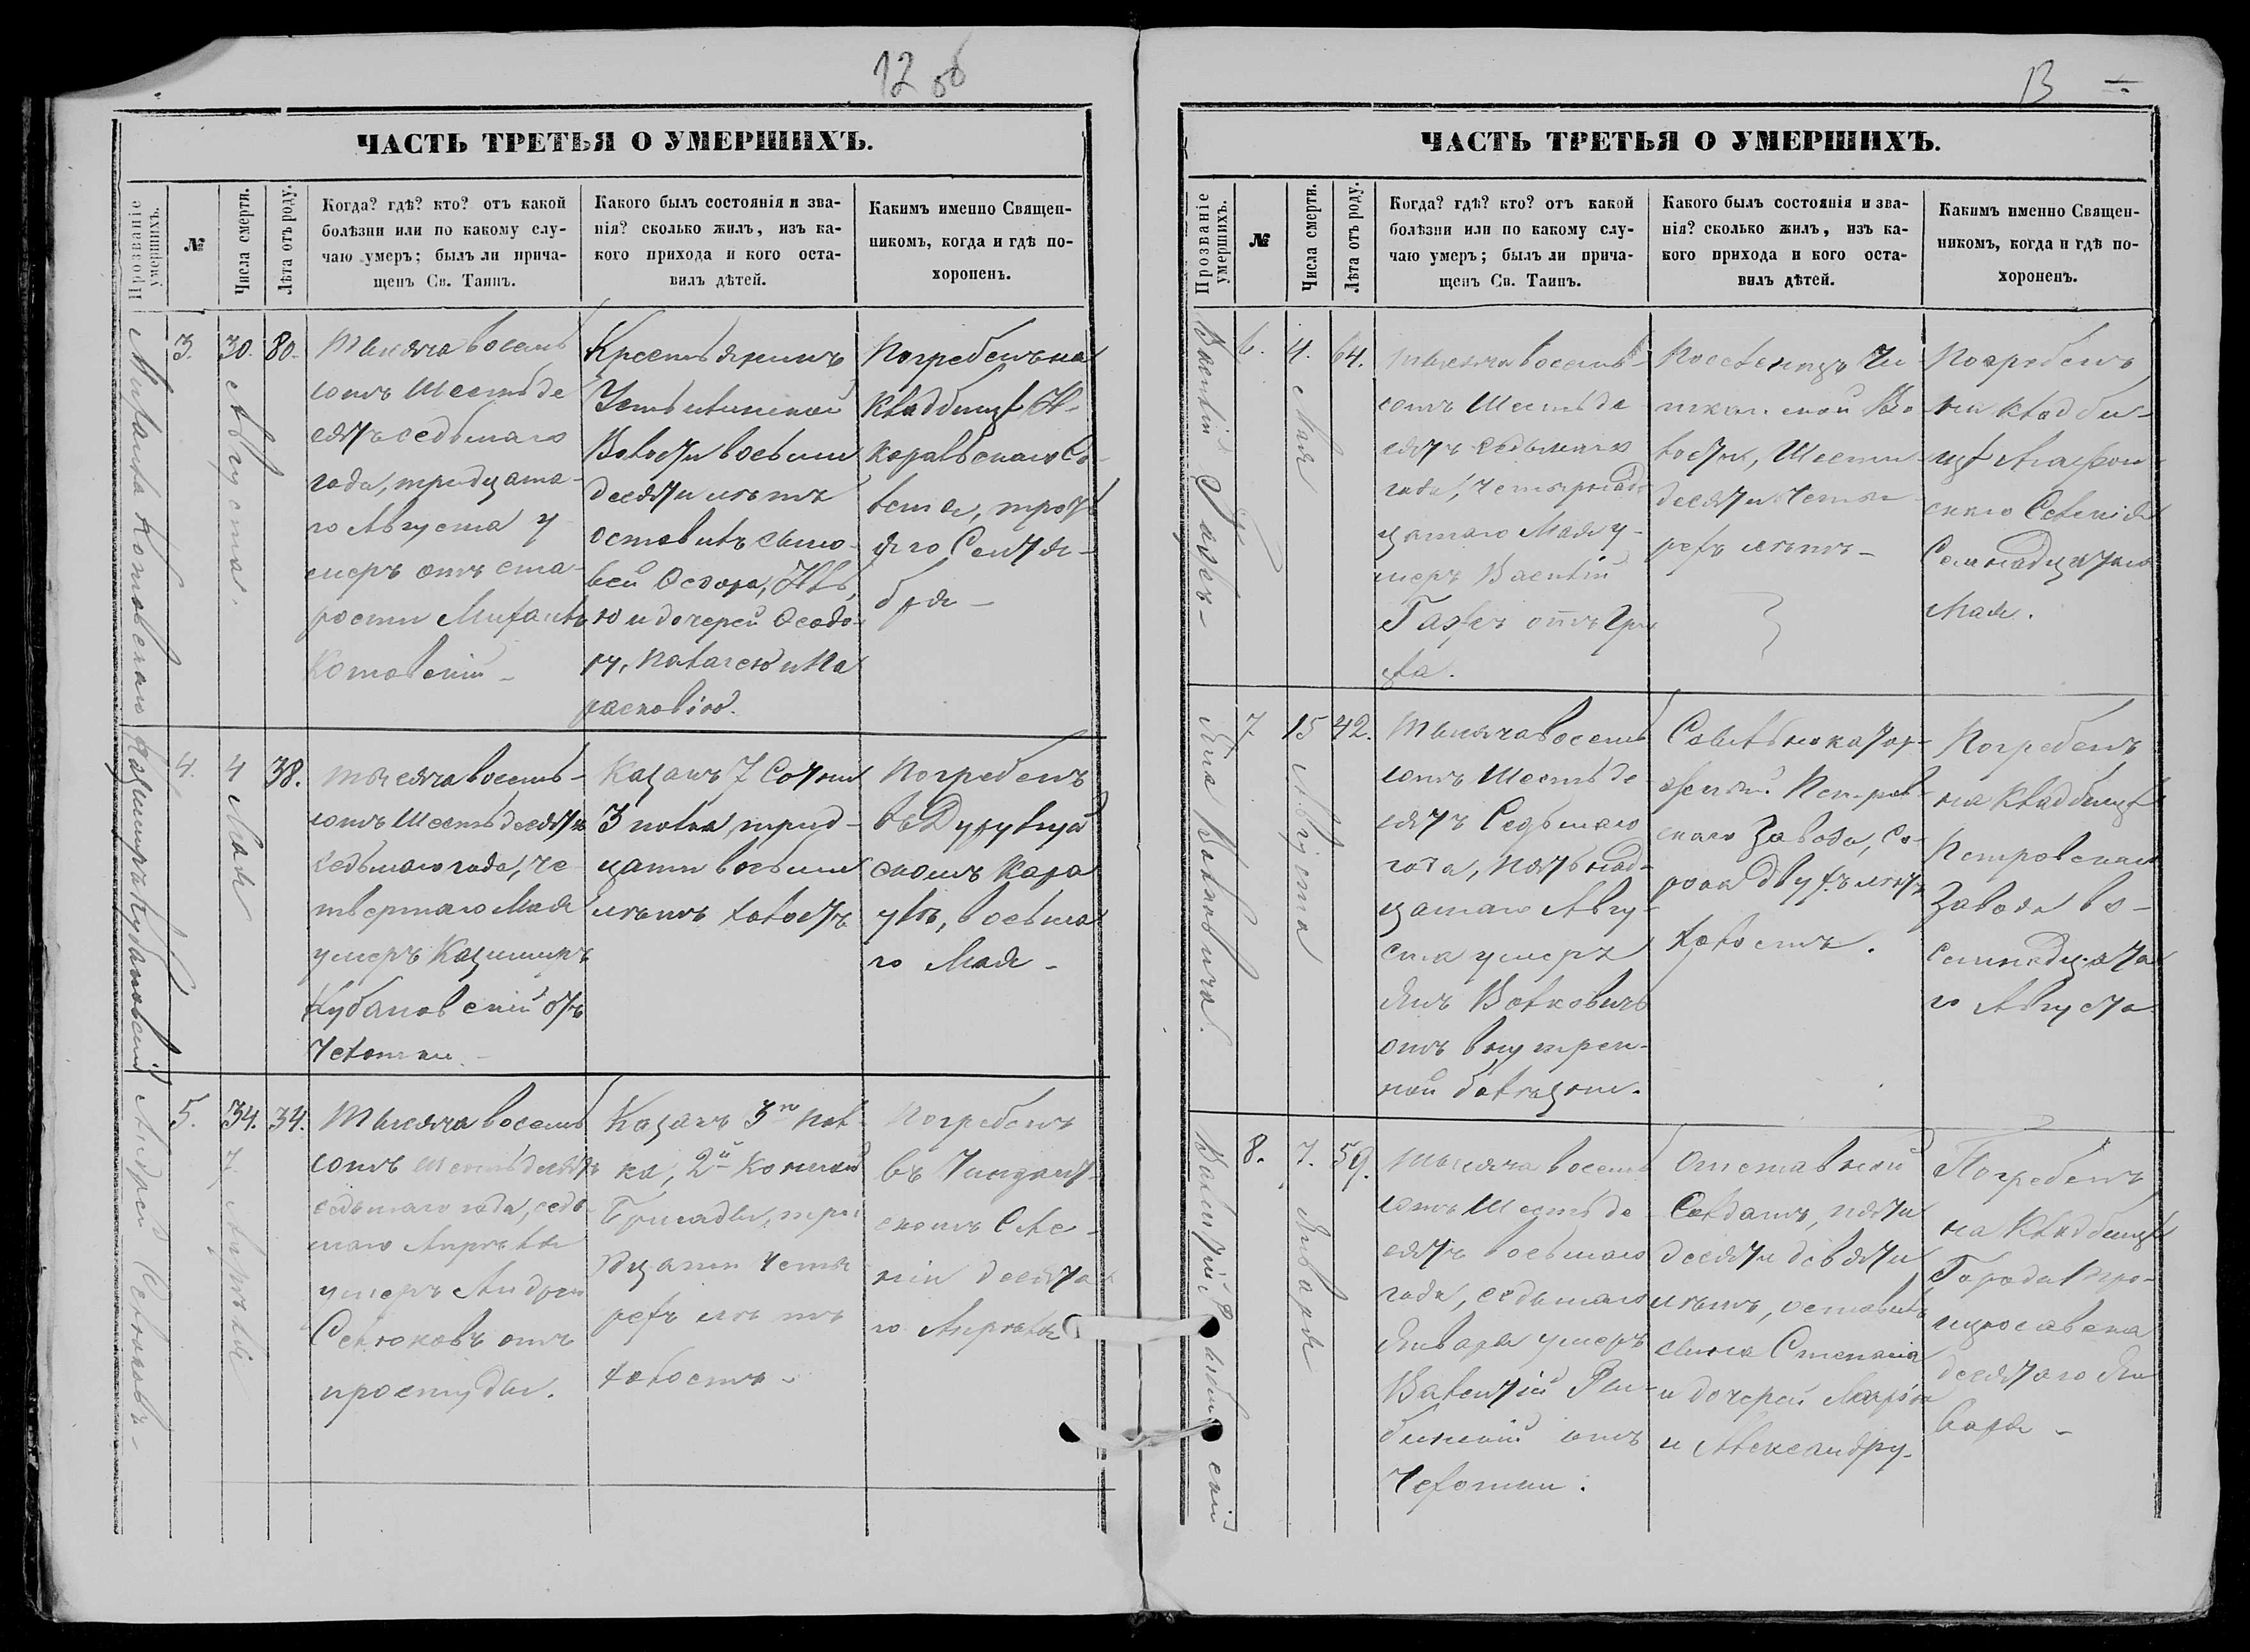 12 об
ЧАСТЬ ТРЕТЬЯ О УМЕРШИХЪ.
Прозваніе умершихъ.
№
Числа смерти.
Лѣта отъ роду.
Когда? гдѣ? кто? отъ какой
болѣзни или по какому слу-
чаю умеръ; былъ ли прича-
щенъ Св. Таинъ.
Какого былъ состоянія и зва-
нія? сколько жилъ, изъ ка-
кого прихода и кого оста-
вилъ дѣтей.
Какимъ именно Священ-
никомъ, когда и гдѣ по-
хороненъ.
Михаила Котовскаго
3.
30 Августа.
80.
Тысяча восемь
сотъ шестьде
сятъ седьмаго
года, тридцата-
го Августа у
меръ отъ ста-
рости Михаилъ
Котовскій
Крестьянинъ
Волости восьми
десяти лѣтъ
оставилъ сыно-
вей Ѳедора,
ю и дочерей Ѳеодо-
ру, Палагею и Па
расковію.
Погребенъ на
кладбищѣ
треть
яго Сентя-
бря
Казиміра Кубановскій
4.
4 Мая
38.
тысяча восемь-
сотъ шестьдесятъ
седьмаго года, че
твертаго Мая
умеръ Казиміръ
Кубановскій отъ
чахотки
Казакъ 7 Сотни
3 полка, трид-
цати восьми
лѣтъ холостъ
Погребенъ
въ
скомъ кара
улѣ, восьма
го Мая
Андрей Селюковъ
5.
34.
7 Апрѣля
34.
Тысяча восемь
сотъ шестьдесятъ
седьмаго года, седь-
маго Апрѣля
умеръ Андрей
Селюковъ отъ
простуды.
Казакъ 3го пол-
ка, 2й Конной
Бригады, три
дцати четы
рехъ лѣтъ
холостъ
Погребенъ
въ
скомъ Селе-
ніи десята
го Апрѣля
13
ЧАСТЬ ТРЕТЬЯ О УМЕРШИХЪ.
Прозваніе умершихъ.
№
Числа смерти.
Лѣта отъ роду.
Когда? гдѣ? кто? отъ какой
болѣзни или по какому слу-
чаю умеръ; былъ ли прича-
щенъ Св. Таинъ.
Какого былъ состоянія и зва-
нія? сколько жилъ, изъ ка-
кого прихода и кого оста-
вилъ дѣтей.
Какимъ именно Священ-
никомъ, когда и гдѣ по-
хороненъ.
Василій
6.
4. Мая
64.
тысяча восемь-
сотъ шестьде
сятъ седьмаго
года, четырнад
цатаго Мая у-
меръ Василій
отъ
Поселенецъ
Во
лости, шести
десяти четы
рехъ лѣтъ
Погребенъ
на кладби-
щѣ
скаго Селенія
Семнадцатаго
Мая.
Яна Волковича.
7
15 Августа
42.
Тысяча восемь
сотъ шестьде
сятъ Седьмаго
года, пятьнад-
цатаго Авгу-
ста умеръ
Янъ Волковичъ
отъ внутрен-
ной болѣзни.
Ссыльно катор-
жный Петров-
скаго Завода, со-
рока двухъ лѣтъ
холостъ.
Погребенъ
на кладбищѣ
Петровскаго
Завода во-
семнадцата
го Августа
8.
7. Января
59.
тысяча восемь
сотъ шестьде
сятъ восьмаго
года, седьмаго
Января умеръ
Валентій
отъ
Чахотки.
Отставной
Солдатъ, пяти
десяти девяти
лѣтъ, оставилъ
сына Степана
и дочерей Марію
и Александру
Погребенъ
на кладбищѣ
Города
десятаго Ян
варя